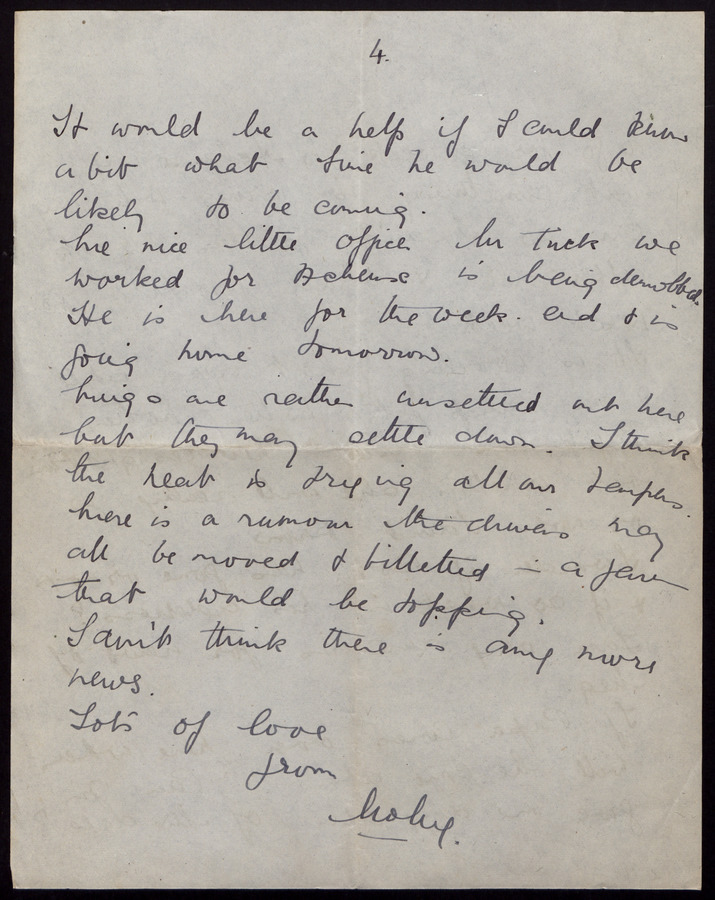 4.
It would be a help if I could know
a bit what time he would be
likely to be coming.
The nice little officer Mr Tuck we
worked for is being demobbed
He is here for the week-end & is
going home tomorrow.
Things are rather unsettled out here
but they may settle down. I think
the heat is trying all our tempers.
There is a rumour the drivers may
all be moved & billetted in a farm
that would be topping.
I don't think there is any more
news.
Lots of love
from